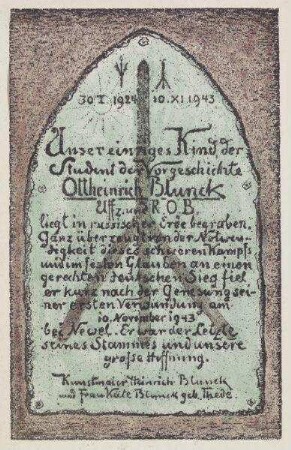 ᛉ ᛣ
30.I.1924 10.XI.1943
Unser einziges Kind, der
Student der Vorgeschichte
Ottheinrich Blunck
Uffz. und R.O.B.
liegt in russischer Erde begraben.
Ganz überzeugt von der Notwen-
digkeit dieses schweren Kampfs
und im festen Glauben an einen
gerechten deutschen Sieg fiel
er kurz nach der Genesung sei-
ner ersten Verwundung am
10. November 1943
bei Newel. Er war der Letzte
seines Stammes und unsere
große Hoffnung.
Kunstmaler Heinrich Blunck
und Frau Käte Blunck geb. Thede.